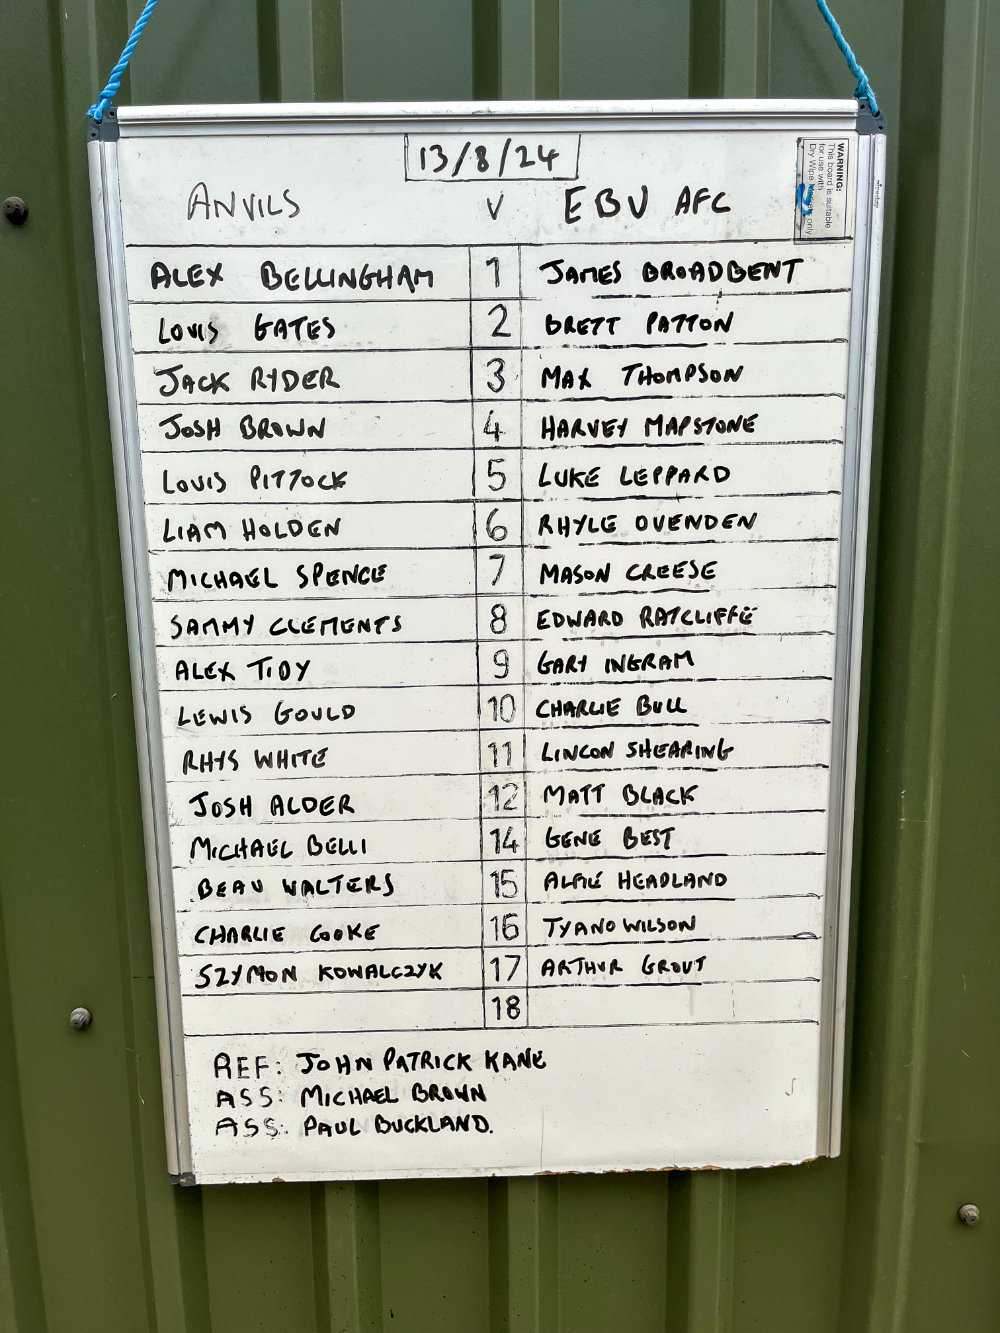 13/8/24
WARNING:
This board is suitable
for use with
Dry Wipe only
ANVILS V EBV AFC
ALEX BELLINGHAM 1 JAMES BROADBENT
LOUIS GATES 2 BRETT PATTON
JACK RYDER 3 MAX THOMPSON
JOSH BROWN 4 HARVEY MAPSTONE
LOUIS PITTOCK 5 LUKE LEPPARD
LIAM HOLDEN 6 RHYLE OVENDEN
MICHAEL SPENCE 7 MASON CREESE
SAMMY CLEMENTS 8 EDWARD RATCLIFFE
ALEX TIDY 9 GARY INGRAM
LEWIS GOULD 10 CHARLIE BULL
RHYS WHITE 11 LINCON SHEARING
JOSH ALDER 12 MATT BLACK
MICHAEL BELLI 14 GENE BEST
BEAU WALTERS 15 ALFIE HEADLAND
CHARLIE COOKE 16 TYANO WILSON
SZYMON KOWALCZYK 17 ARTHUR GROUT
18
REF: JOHN PATRICK KANE
ASS: MICHAEL BROWN
ASS: PAUL BUCKLAND.